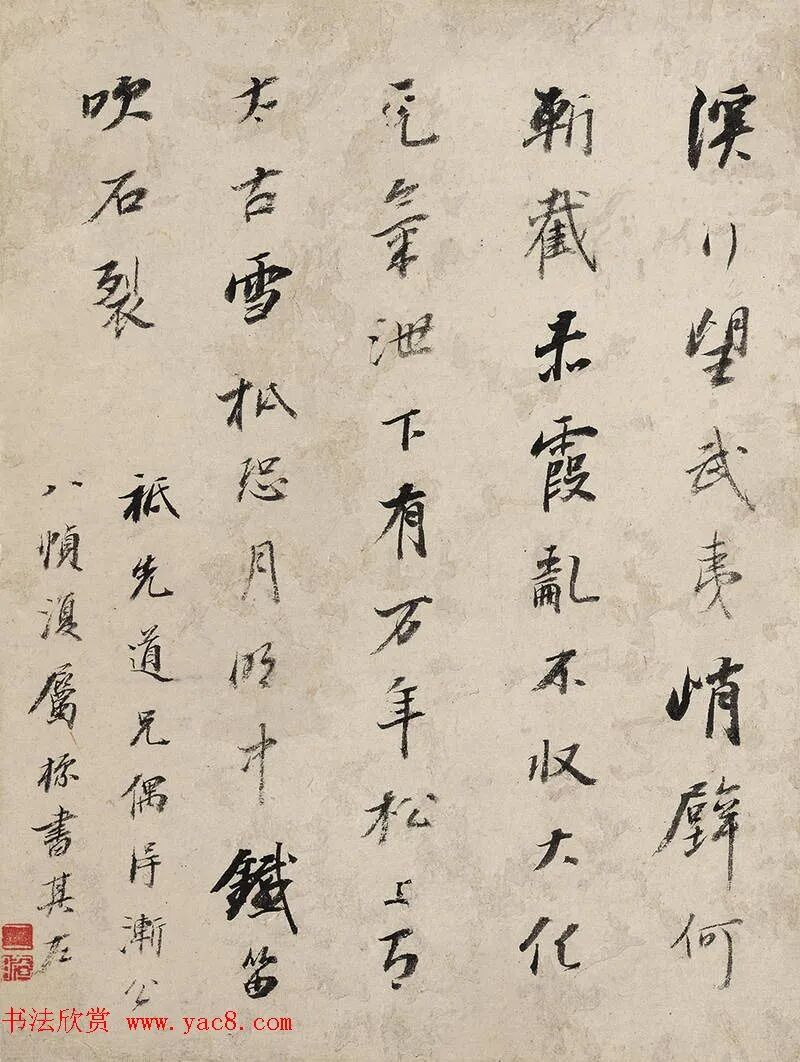 溪行望武夷峭壁何
斬截赤霞亂不收大化
元氣泄下有万年松上有
太古雪秪恐月明中鐵笛
吹石裂
祇先道兄偶得漸公
八幀屬書其左
书法欣赏 www.yac8.com